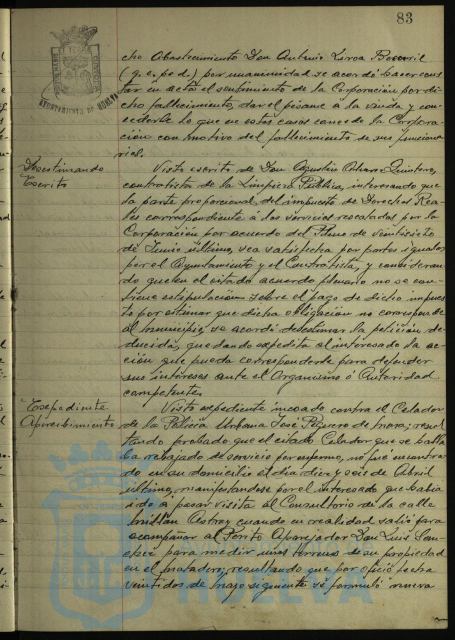 83
AYUNTAMIENTO DE HUELVA
cho Abastecimiento Don Antonio Becerril
(q. e. p. d.) por unanimidad se acordó hacer cons
tar en acta el sentimiento de la Corporación por di
cho fallecimiento, dar el pésame a la viuda y con
cederle lo que en estos casos concede la Corpora
ción con motivo del fallecimiento de sus funciona
rios.
Desestimando
Escrito
Visto escrito de Don Agustín Quintero,
contratista de la Limpieza Pública, interesando que
la parte proporcional del impuesto de Derechos Rea
les correspondiente á los servicios rescatados por la
Corporación por acuerdo del Pleno de veintiocho
de Junio último, sea satisfecha por partes iguales
por el Ayuntamiento y el Contratista, y consideran
do que en el citado acuerdo plenario no se con
tiene estipulación sobre el pago de dicho impues
to por estimar que dicha obligación no corresponde
al municipio, se acordó desestimar la petición de
ducida, quedando expedita al interesado la ac
ción que pueda corresponderle para defender
sus intereses ante el Organismo ó Autoridad
competente.
Expediente
Apercibimiento
Visto expediente incoado contra el Celador
de la Policía Urbana José Piquero de Mora; resul
tando probado que el citado Celador que se halla
ba rebajado de servicio por enfermo, no fué encontra
do en su domicilio el día diez y seis de Abril
último, manifestandose por el interesado que habia
ido á pasar visita al Consultorio de la calle
Millán Astray cuando en realidad salió para
acompañar al Perito Aparejador Don Luis
para medir unos terrenos de su propiedad
en el matadero; resultando que por oficio fecha
veintidos de mayo siguiente se formuló nueva
HUELVA